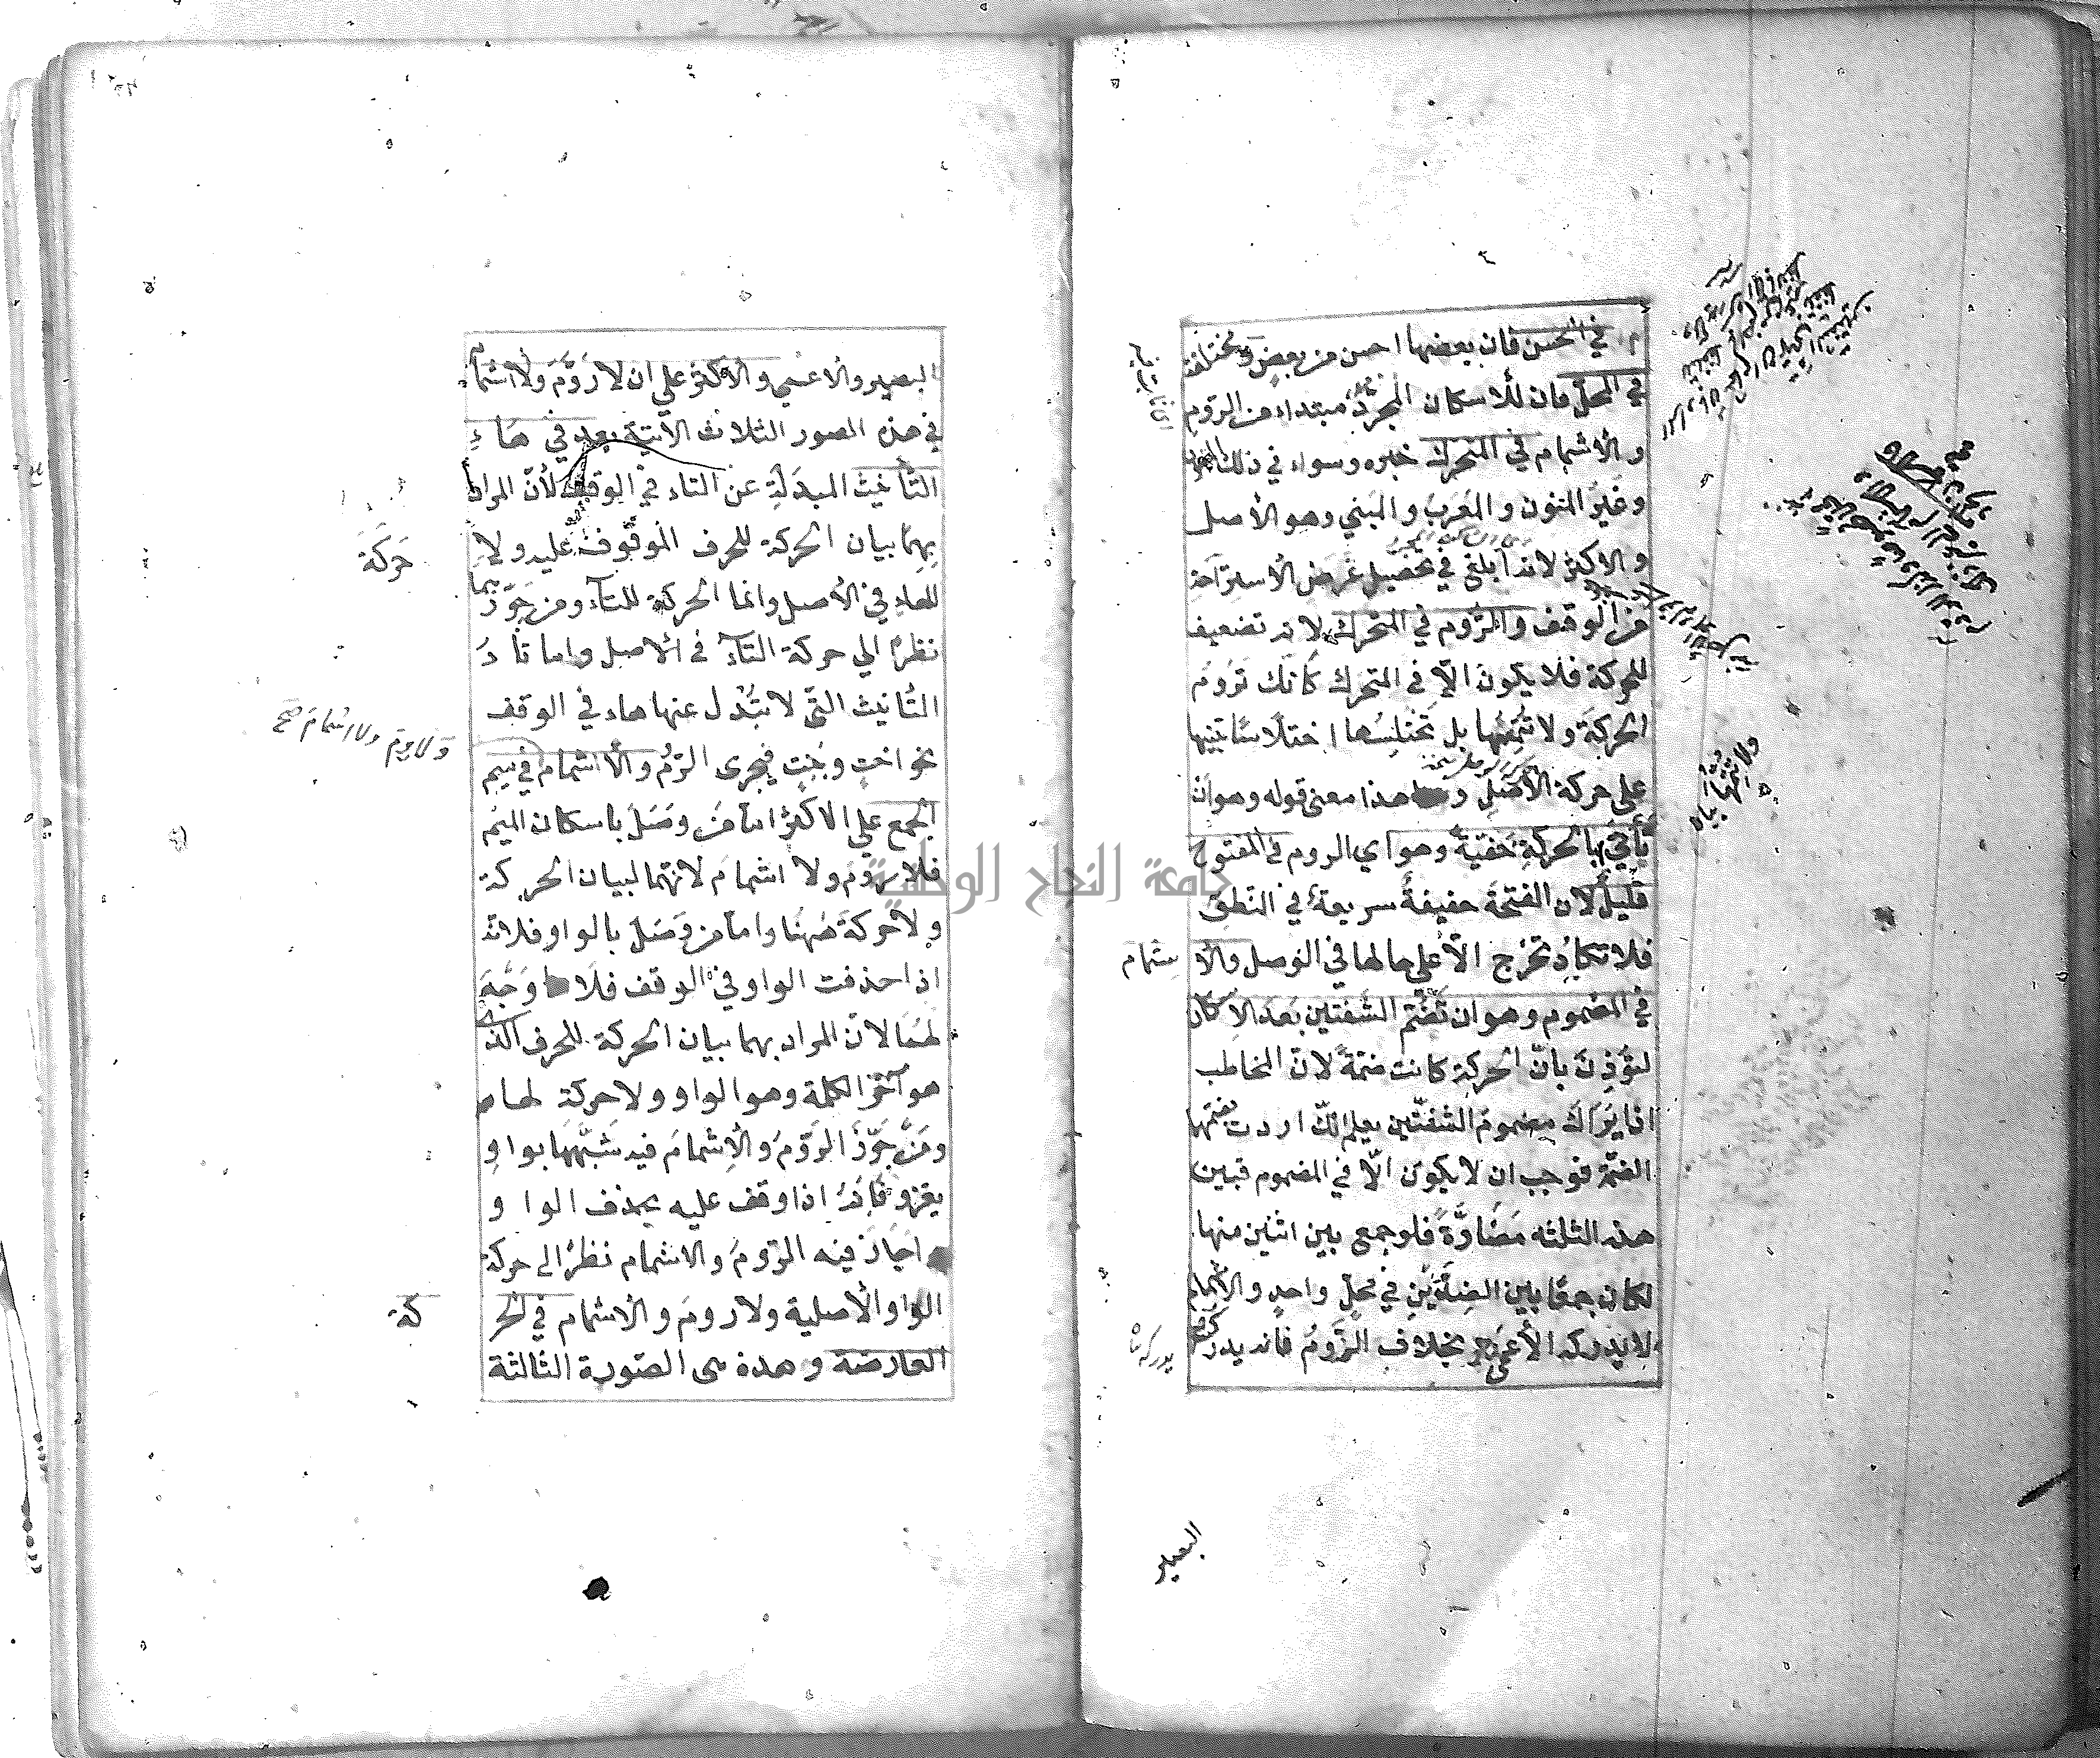 في الحسن فان بعضها احسن من بعض ومختلفة
في المحل فان للاسكان المجرد مبتداء من الروم
والاشمام في المتحرك خبره وسواء في ذلك
وغير المنون والمعرب والمبني وهو الأصل
والاكثر لانه ابلغ في تحصيل غرض الاستراحة
من الوقف والرَّوم في المتحرك لانه تضعيف
للحركة فلا يكون الّا في المتحرك كانك تَرُومُ
الحركةَ ولا تُتِمُّها بل تختلِسُها اختلاسًا تنبيها
على حركة الأصل و هذا معنى قوله وهو ان
تأتي بالحركةِ خفيّة وهو اي الروم في المفتوح
قليلٌ لان الفتحة خفيفةٌ سريعةٌ في النطق
فلا تكادُ تخرج الّا على حالها في الوصل والأ
شمام
في المضموم وهو ان تَضُمّ الشفتين بَعدَ الاسكان
لتؤذِنَ بانّ الحركة كانت ضمّةً لانّ المخاطب
اذا يَرَاك مضمومَ الشفتين يعلم انّك اردت بضمّها
الضمّة فوجب ان لا يكون الّا في المضموم فبين
هذه الثلثه مَضَادَّةً فلو جمع بين اثنين منها
لكان جمعًا بين الضِدَّيْنِ في محلٍّ واحدٍ والاشمام
لا يدركه الأعمى بخلاف الرَّوم فانه يدركه
يدركه
البصير
البصير والاعمى والأكثر على ان لا رَوْمَ ولا اشمام
في هذه الصور الثلاث الآتية بعد في هَاءِ
التأنيث المبدَلَةِ عن التاء في الوقف لأنّ المراد
بهما بيان الحركة للحرف الموقوف عليه ولا
حَرَكَة
للهاء في الأصل وانما الحركة للتاء ومن جَوَّزهما
نظرَ الى حركة التاء في الاصل واما تاءُ
التأنيث التي لا تُبْدَل عنها هاء في الوقف
نحو اختٍ وبنتٍ فيجرى الرَّوْمُ والأشمام في ميم
ولا روم ولا اشمام صح
الجمع على الاكثر اما مَن وصَلَ باسكان الميم
فلا رومَ ولا اشمام لانهما لبيان الحركة
ولا حركةَ هٰهُنا واما من وَصَلَ بالواو فلانه
اذا حذفت الواو في الوقف فلا وَجْهَ
لهُمَا لانّ المراد بهما بيان الحركة للحرف الذي
هو آخرُ الكلمة وهو الواو ولا حركة لها
ومَنْ جَوَّزَ الرَّوْمَ والإشمامَ فيه شَبَّهَهَا بواوِ
يغزو فَاِنّهُ اذا وقف عليه بحذف الواو
اجازَ فيه الرَّومَ والاشمام نظرًا الى حركة
الواو الأصلية ولا رومَ والاشمام في الحر
كة
العارضة وهذه هى الصّورة الثالثة
جامعة النجاح الوطنية